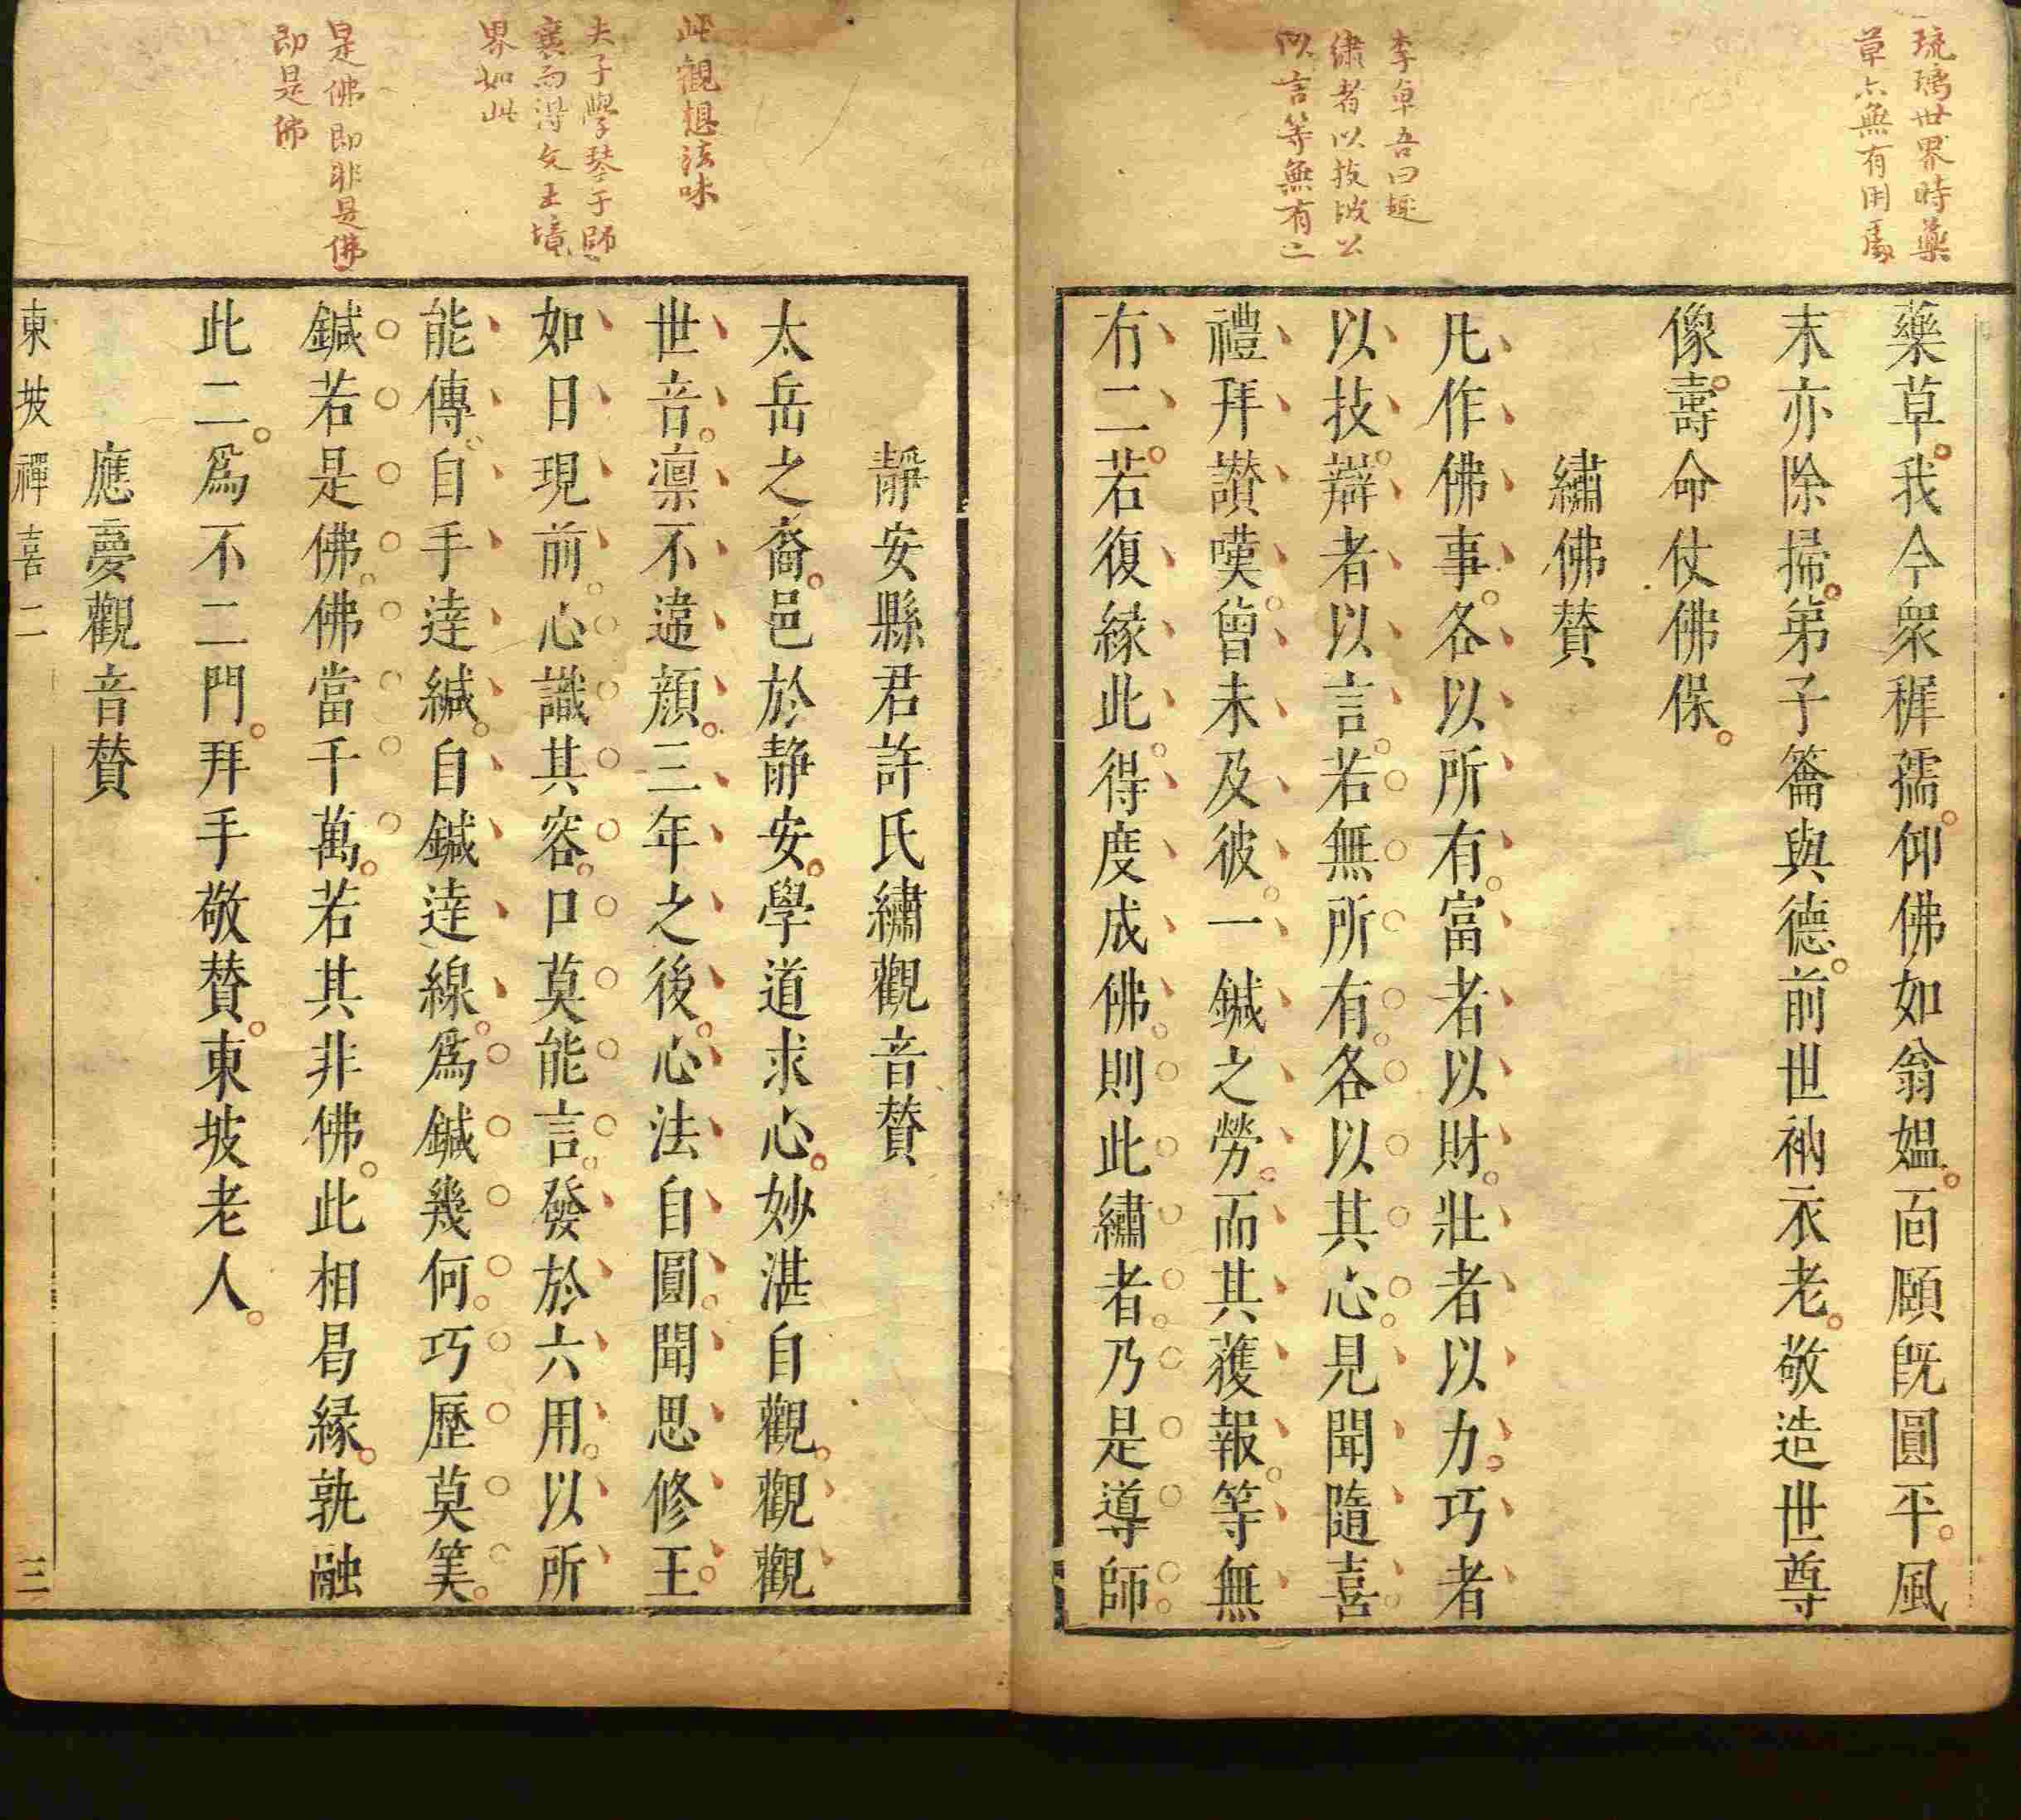 琉璃世界時藥
草亦無有用處
李卓吾曰疑
繡者以技坡公
以言等無有二
藥草我今衆稚孺仰佛如翁媼面頤既圓平風
末亦除掃弟子籥與德前世衲衣老敬造世尊
像壽命仗佛保
繡佛賛
凡作佛事各以所有富者以財壯者以力巧者
以技辯者以言若無所有各以其心見聞隨喜
禮拜讚嘆曾未及彼一鍼之勞而其獲報等無
有二若復緣此得度成佛則此繡者乃是導師
此觀想法味
夫子學琴于師
襄而得文王境
界如此
是佛即非是佛
即是佛
靜安縣君許氏繡觀音賛
太岳之裔邑於靜安學道求心妙湛自觀觀觀
世音凛不違顔三年之後心法自圓聞思修王
如日現前心識其容口莫能言發於六用以所
能傳自手達緘自鍼達線爲鍼幾何巧歷莫筭
鍼若是佛佛當千萬若其非佛此相曷緣孰融
此二爲不二門拜手敬賛東坡老人
應夢觀音賛
東坡禪喜二
三